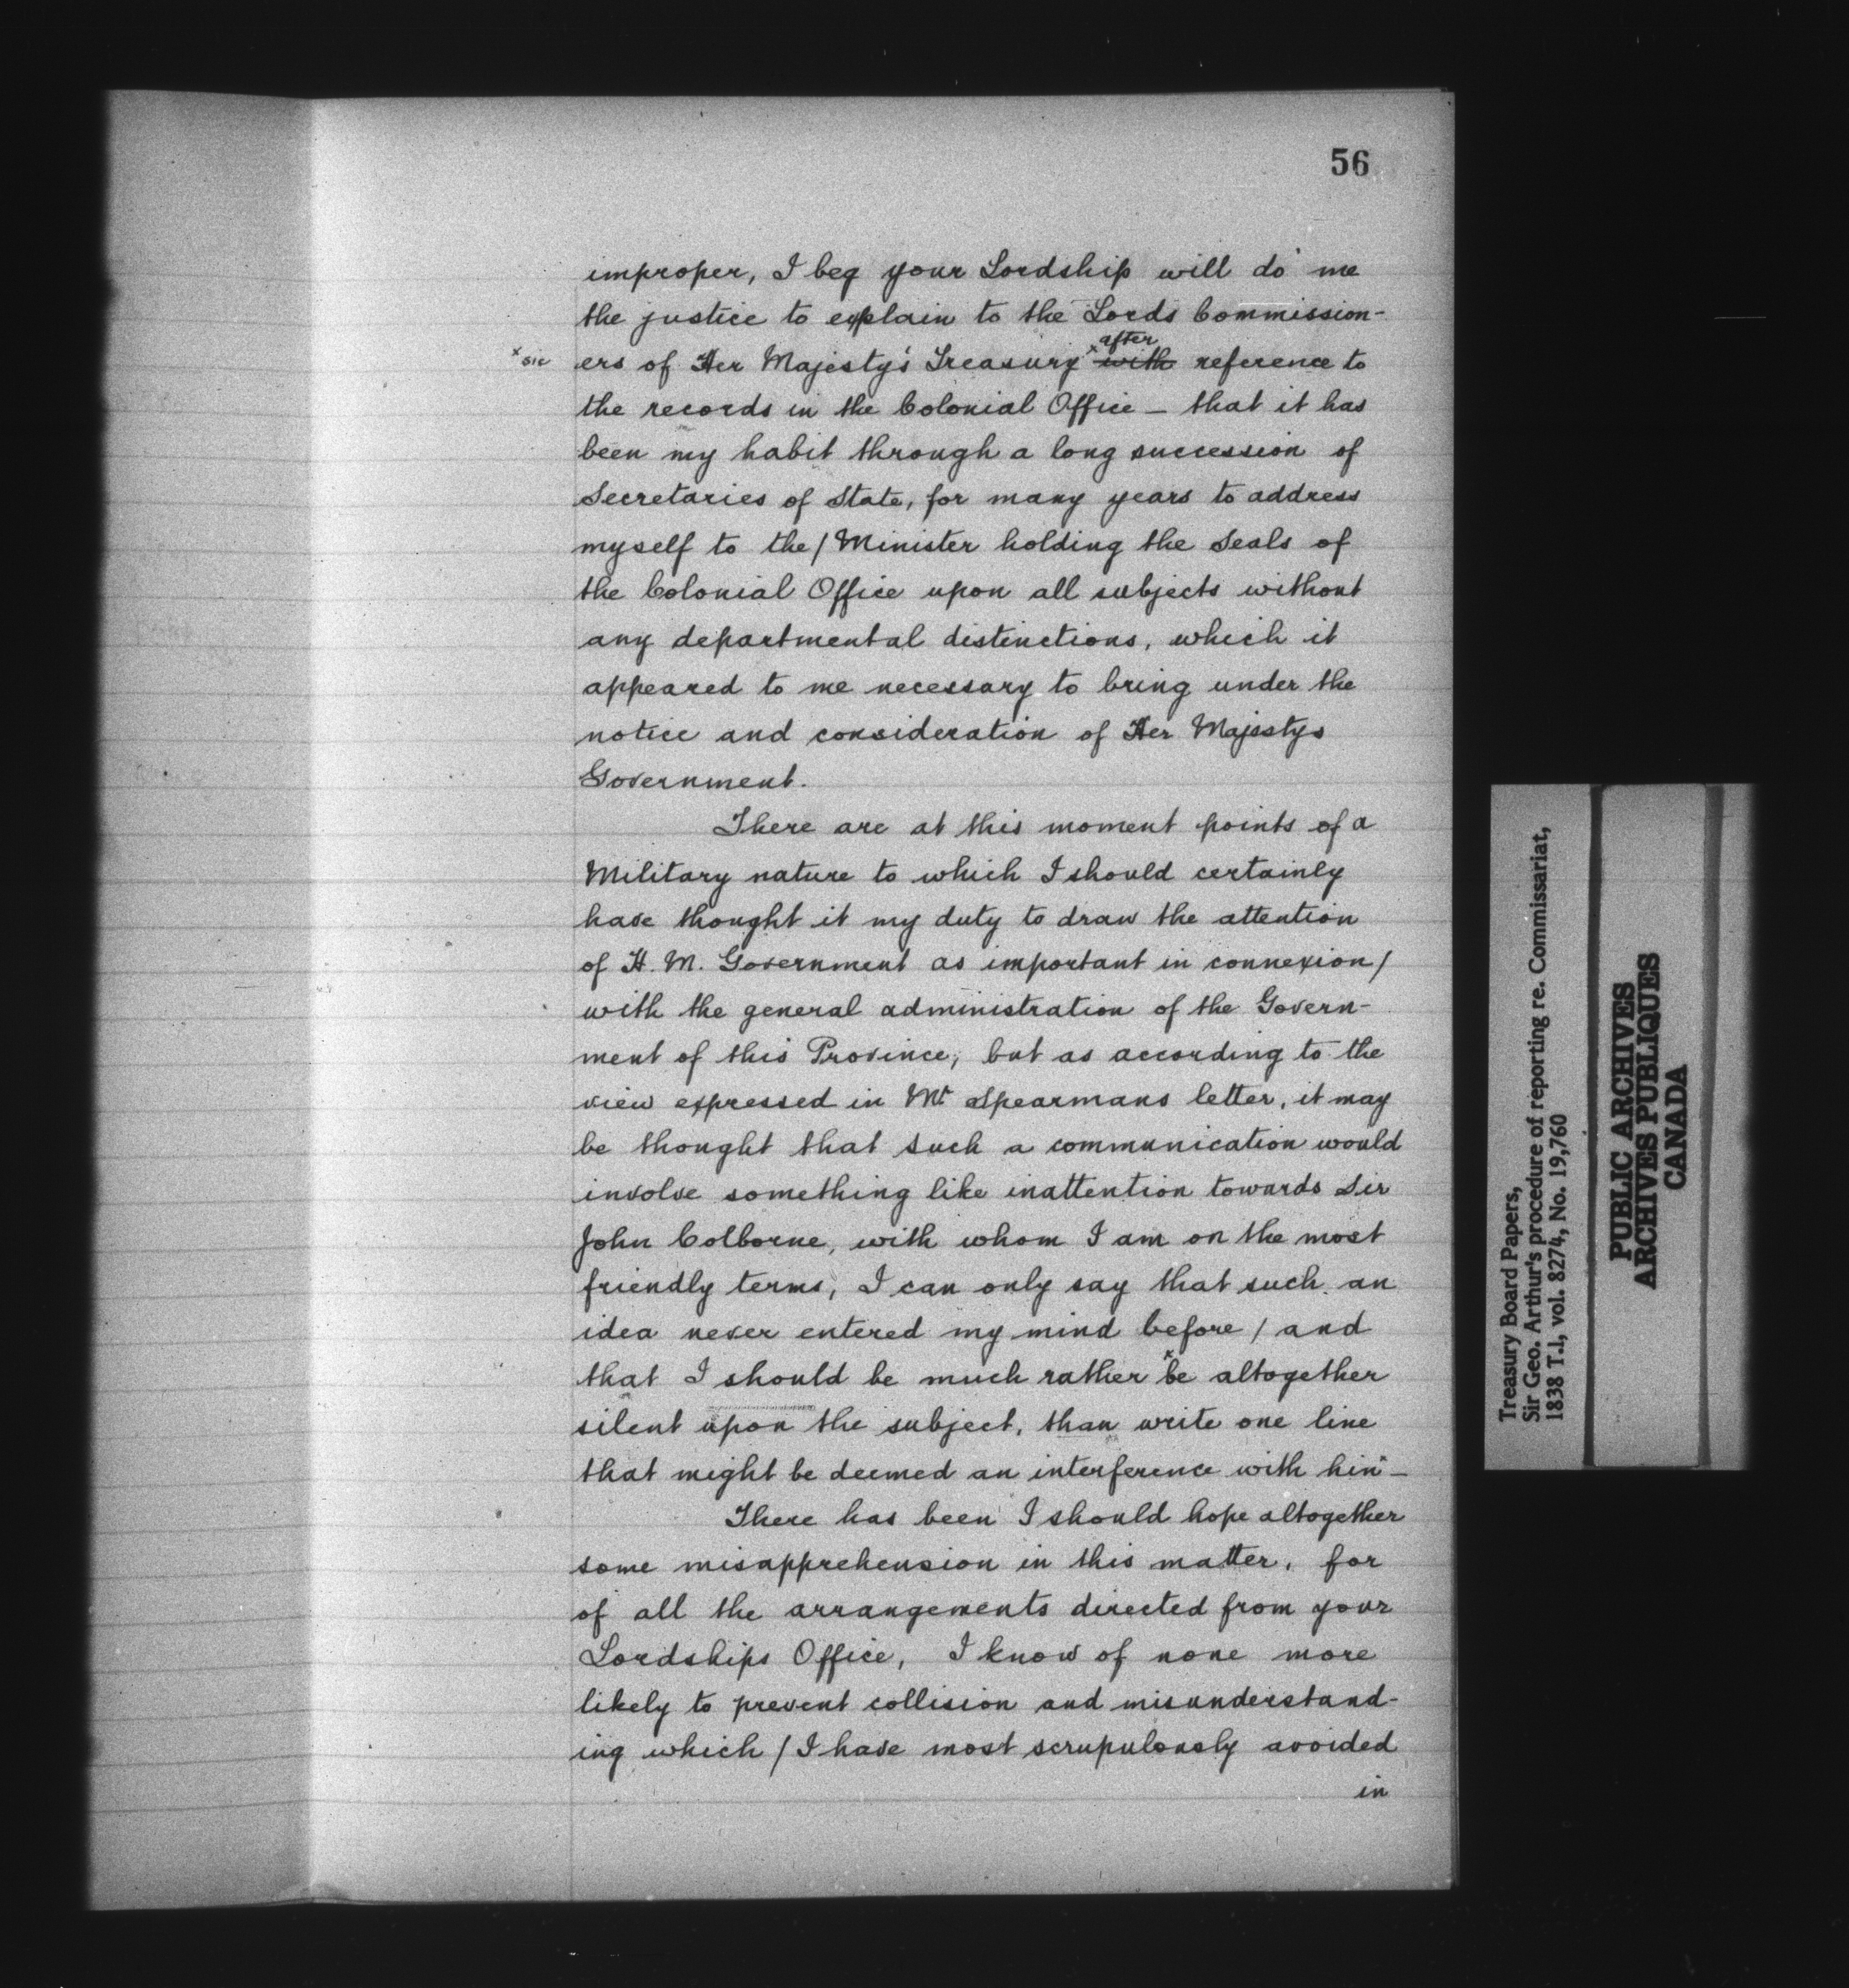 56
improper, I beg your Lordship will do me
the justice to explain to the Lords Commission-
after
x sic ers of Her Majesty's Treasury x with reference to
the records in the Colonial Office — that it has
been my habit through a long succession of
Secretaries of State, for many years to address
myself to the / Minister holding the Seals of
the Colonial Office upon all subjects without
any departmental distinctions, which it
appeared to me necessary to bring under the
notice and consideration of Her Majestys
Government.
There are at this moment points of a
Military nature to which I should certainly
have thought it my duty to draw the attention
of H. M. Government as important in connexion /
with the general administration of the Govern-
ment of this Province; but as according to the
view expressed in Mr Spearmans letter, it may
be thought that such a communication would
involve something like inattention towards Sir
John Colborne, with whom I am on the most
friendly terms, I can only say that such an
idea never entered my mind before / and
that I should be much rather x be altogether
silent upon the subject, than write one line
that might be deemed an interference with him —
There has been I should hope altogether
some misapprehension in this matter, for
of all the arrangements directed from your
Lordships Office, I know of none more
likely to prevent collision and misunderstand-
ing which / I have most scrupulously avoided
in
Treasury Board Papers,
Sir Geo. Arthur's procedure of reporting re. Commissariat,
1838 T.1, vol. 8274, No. 19,760
PUBLIC ARCHIVES
ARCHIVES PUBLIQUES
CANADA